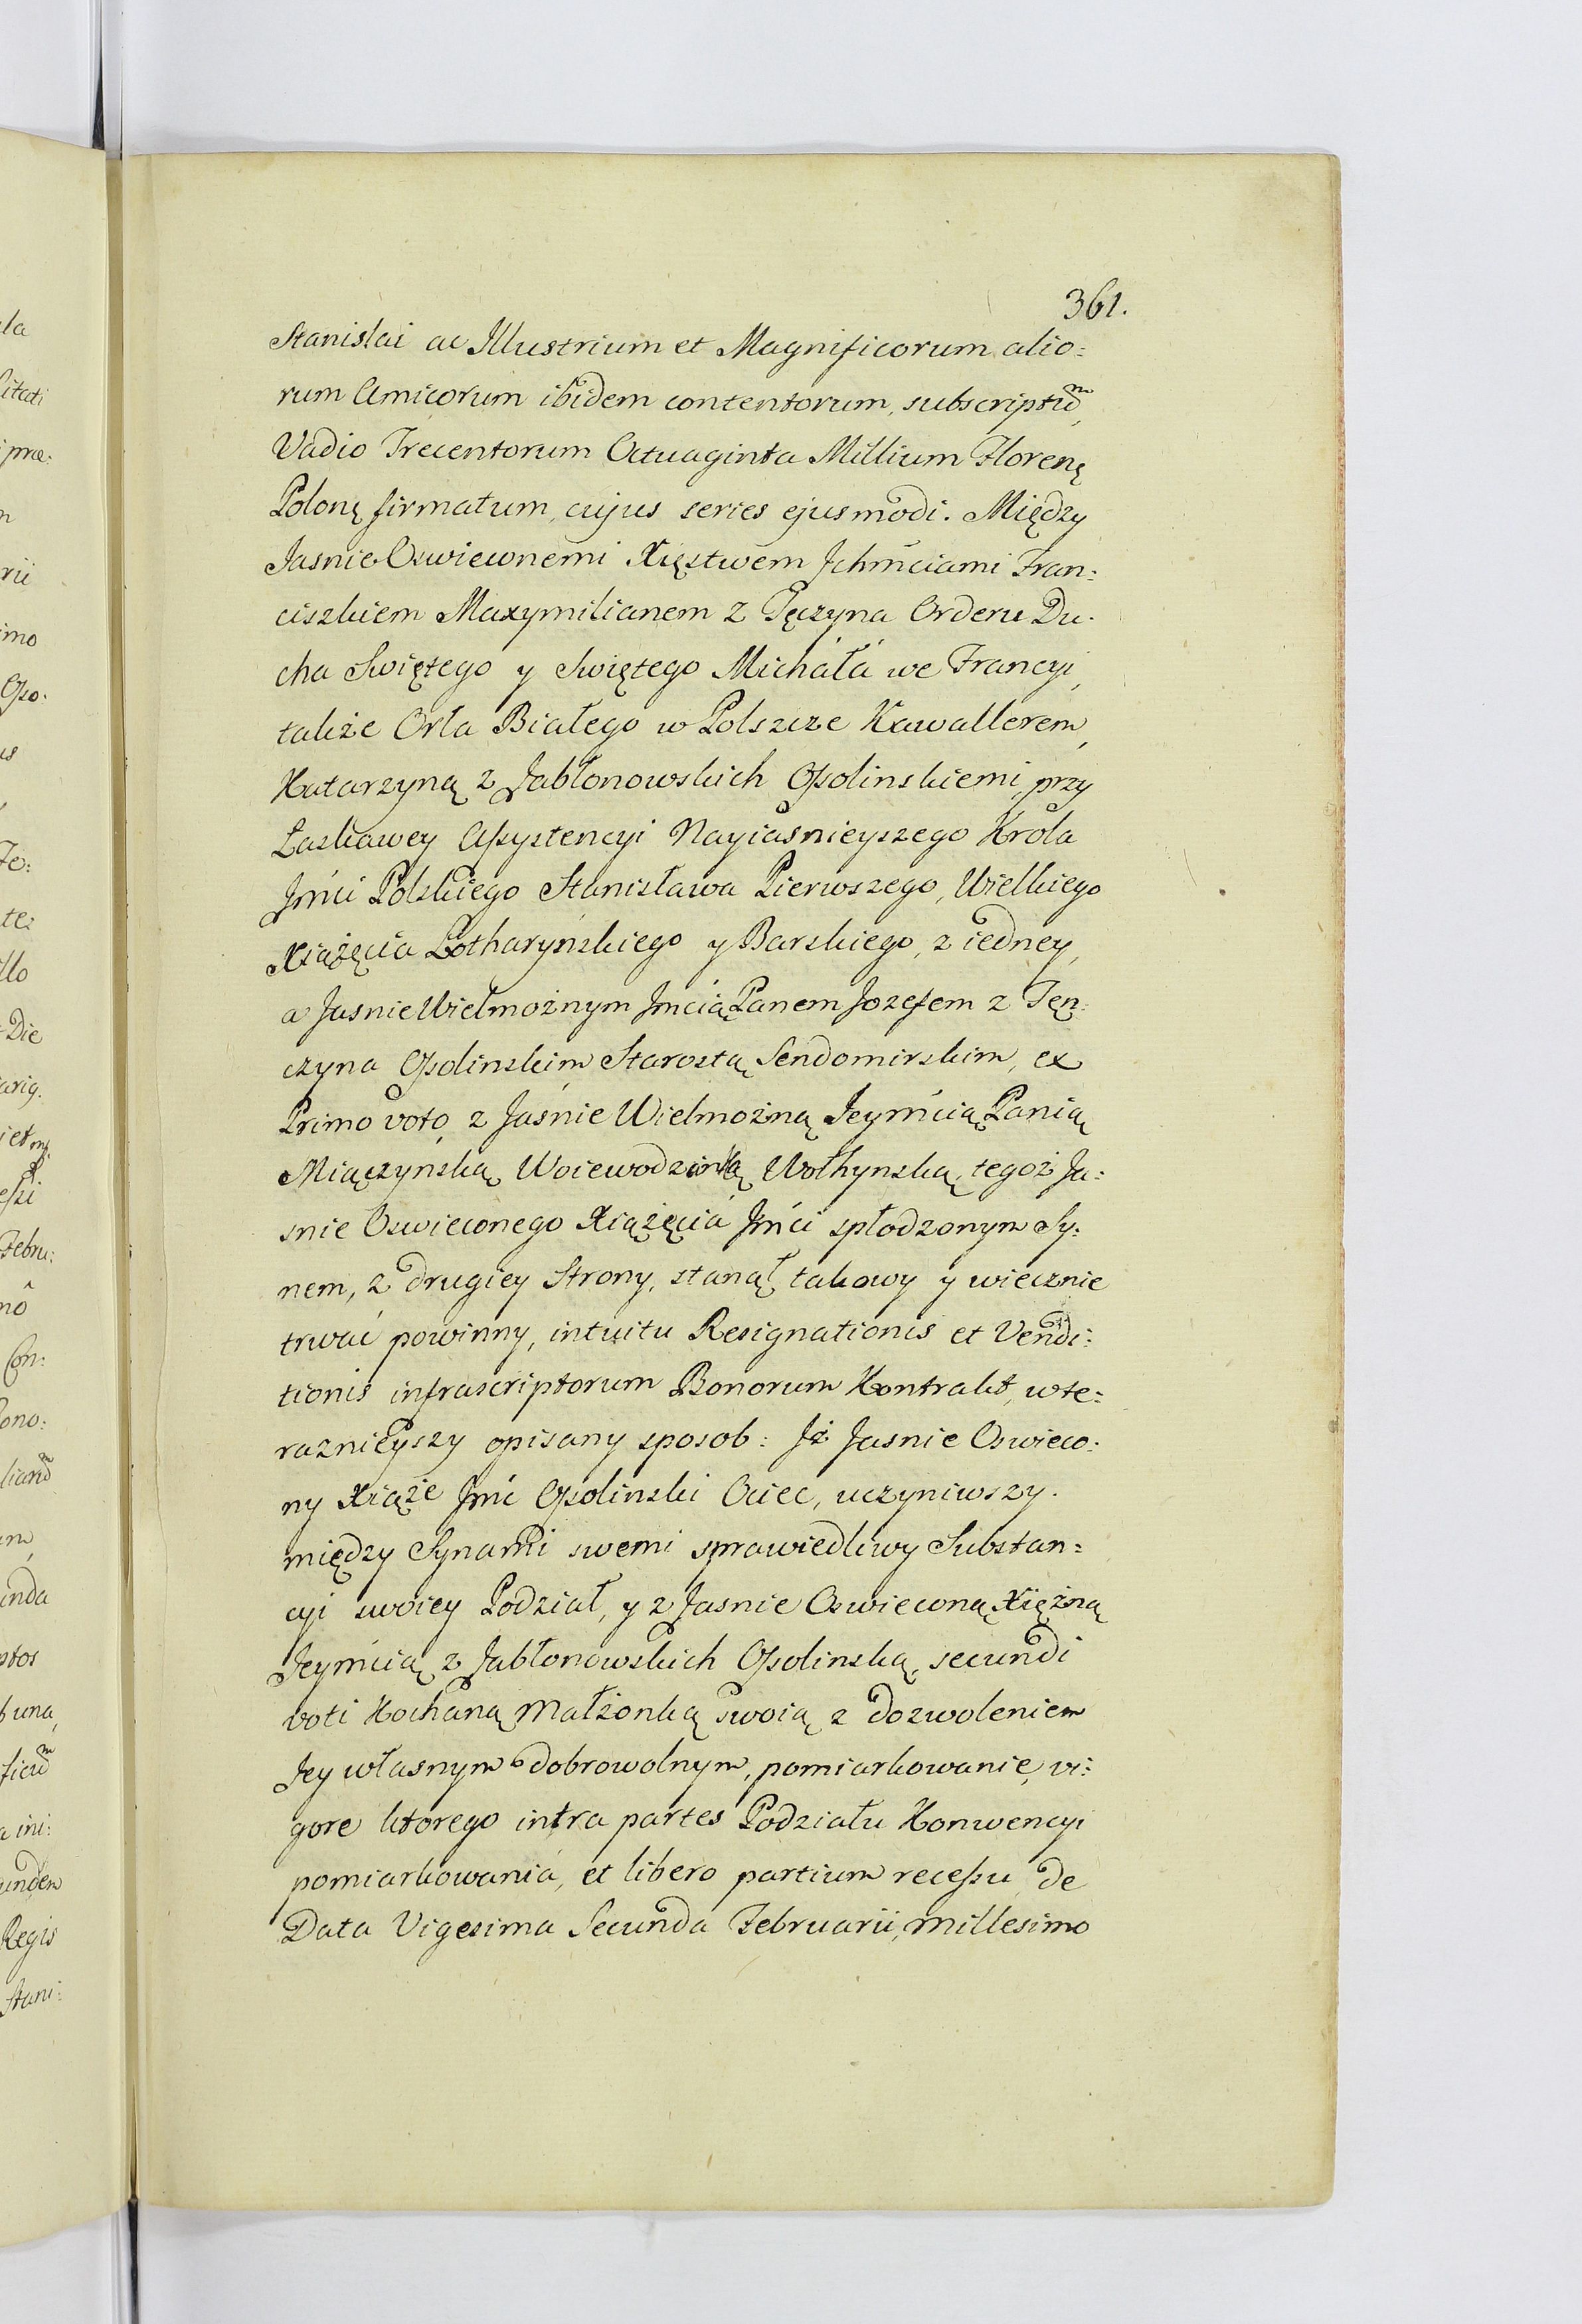 361.
Stanislai ac Illustrium et Magnificorum alio=
rum Amicorum ibidem contentorum, subscriptũ,
Vadio Trecentorum Octuaginta Millium Florenę
Polonę firmatum, cujus series ejusmodi. Między
Jasnie Oswieconemi Xięstwem Jchmciami Fran=
ciszkiem Maxymilianem z Tęczyna Orderu Du=
cha Swiętego y Swiętego Micháłá we Francyi,
także Orła Białego w Polszcze Kawallerem,
Katarzyną z Jabłonowskich Ossolinskiemi, przy
Łaskawey Assystencyi Nayiasnieyszego Krola
Jmći Polskiego Stanisława Pierwszego, Wielkiego
Xiążęcia Lotharyńskiego y Barskiego, z iedney,
a Jasnie Wielmożnym Jmcią Panem Jozefem z Tęn=
czyna Ossolinskim Starostą Sendomirskim, ex
Primo voto, z Jaśnie Wielmożną Jeymcią Panią
Miączyńską Woiewodzanką Wołhynską, tegoż Ja=
snie Oswieconego Xiążęciá Jmći spłodzonym Sy=
nem, z drugiey Strony, stanął takowy y wiecznie
trwać powinny, intuitu Resignationis et Vendi=
tionis infrascriptorum Bonorum Kontrakt, w te=
raznieyszy opisany sposob: Jż Jasnie Oswieco=
ny Xiąże Jmć Ossolinski Ociec, uczyniwszy
między Synami swemi sprawiedliwy Substan=
cyi swoiey Podział, y z Jasnie Oswieconą Xiężną
Jeymcią z Jabłonowskich Ossolinską, secundi
voti Kochaną Małżonką swoią z dozwoleniem
Jey własnym dobrowolnym, pomiarkowanie, vi=
gore ktorego intra partes Podziału Konwencyi
pomiarkowaniá, et libero partium recessu, de
Data Vigesima Secunda Februarii, Millesimo